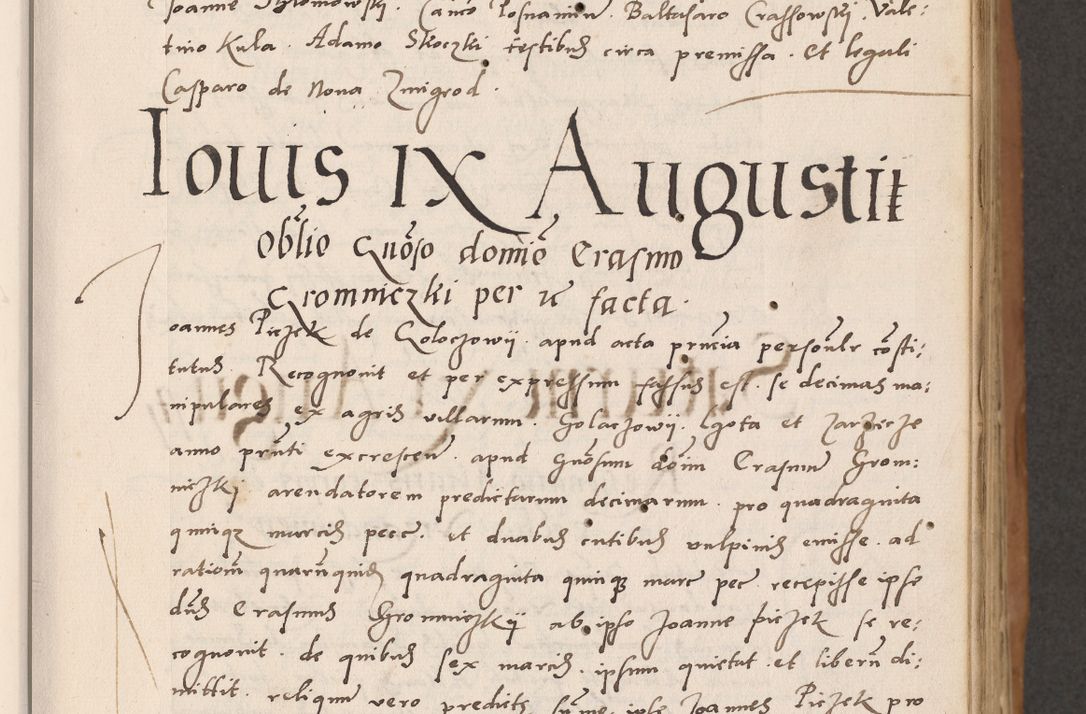 Joanne Skromowski. Canco Posnanien. Baltasaro Crassowski. Vale:
tino Kula. Adamo Skoczki testibus circa premissa. Et legali
Casparo de Nova Zmigrod.
Iouis IX Augusti
Oblio Gnoso domino Erasmo
Gromniczki per u facta.
Joannes Piezek de Goloczowij. apud acta presencia personalr consti:
tutus. Recognouit et per expressum fassus est. se decimas ma:
nipulares ex agris villarum. Golaczowij. Lgota et Zarzecze
anno prnti excrescen. apud Gnosum dnim Erasmum Grom:
niczki arendatorem predictarum decimarum. pro quadraginta
quinque marcis pecc. et duabus cutibus vulpinis emisse. ad
rationem quarumquidem quadraginta quinque marc pec. recepisse ipse
dns Erasmus Gromniczkij ab ipso Joanne Piezek se re:
cognouit. de quibus sex marcis. ipsum quietat. et liberum di:
mittit. reliquum vero predicte summe. ipse Joannes Piezek pro